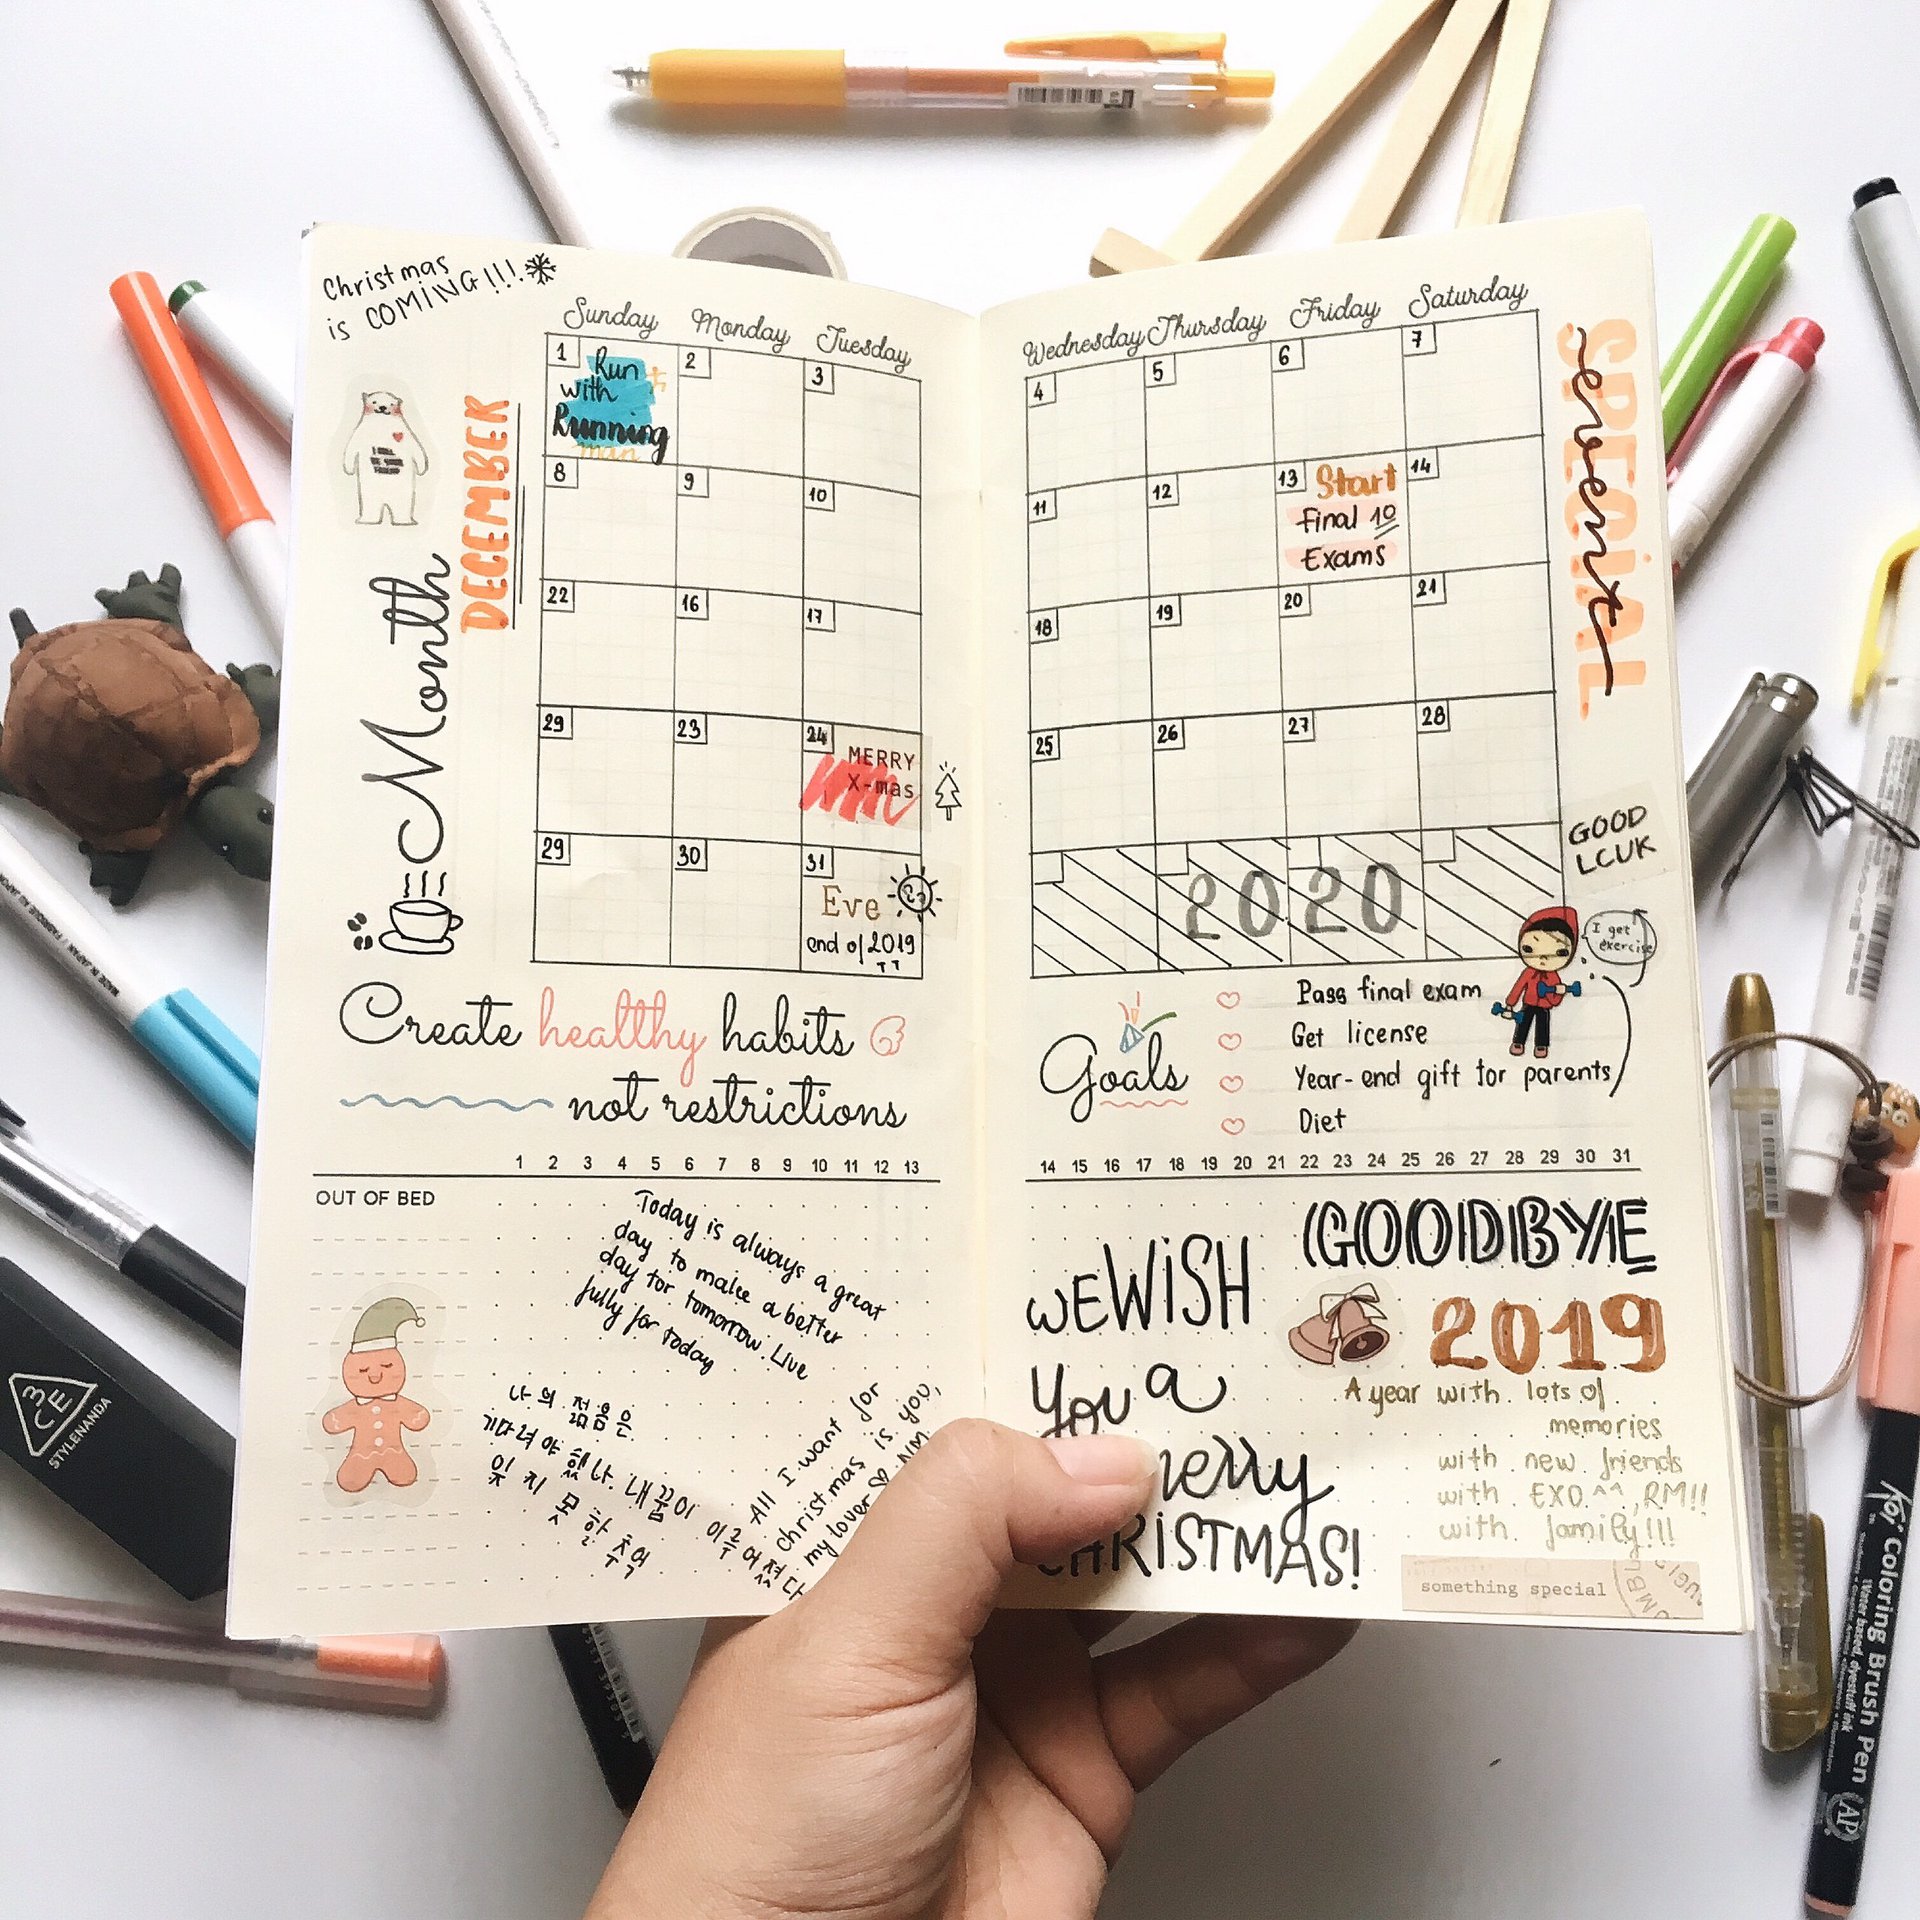 Christmas
is COMING!!!
DECEMBER
Month
Sunday Monday Tuesday
1 2 3
Run
with
Running
man
8 9 10
22 16 17
29 23 24
MERRY
X-mas
29 30 31
Eve
end of 2019
TT
Create healthy habits
not restrictions
1 2 3 4 5 6 7 8 9 10 11 12 13
OUT OF BED
Today is always a great
day to make a better
day for tomorrow. Live
fully for today
나의 젊음은
기다려야 했나 내 꿈이 이루어졌다
잊지 못할 추억
All I want for
christmas is you,
my lover NM
Wednesday Thursday Friday Saturday
4 5 6 7
11 12 13 14
Start
final 10
Exams
18 19 20 21
25 26 27 28
2020
SPECIAL
event
GOOD
LCUK
I get
exercise
Goals
Pass final exam
Get license
Year-end gift for parents
Diet
14 15 16 17 18 19 20 21 22 23 24 25 26 27 28 29 30 31
WEWISH
You a
merry
CHRISTMAS!
GOODBYE
2019
A year with lots of
memories
with new friends
with EXO ^^, RM!!
with family!!!
something special
3CE
STYLENANDA
MADE IN JAPAN
Koi Coloring Brush Pen
AP